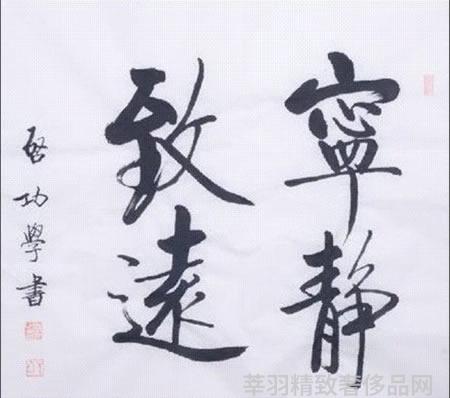 寧靜
致遠
啓功學書
莘羽精致奢侈品网